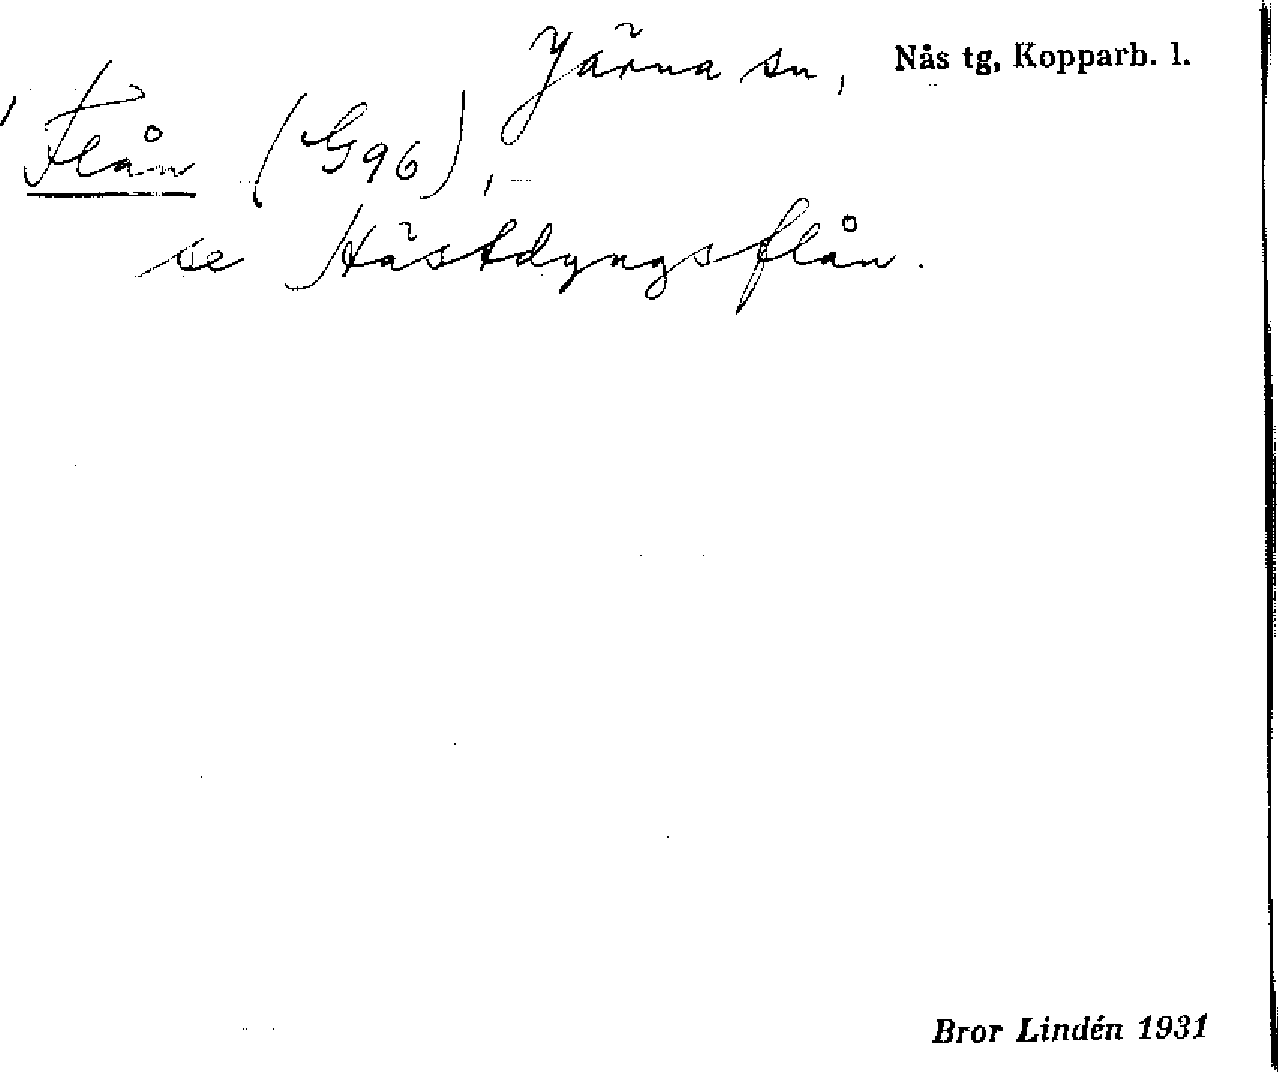 Järna sn, Nås tg, Kopparb. l.
Flån (G96),
se Hästdyngsflån.
Bror Lindén 1931